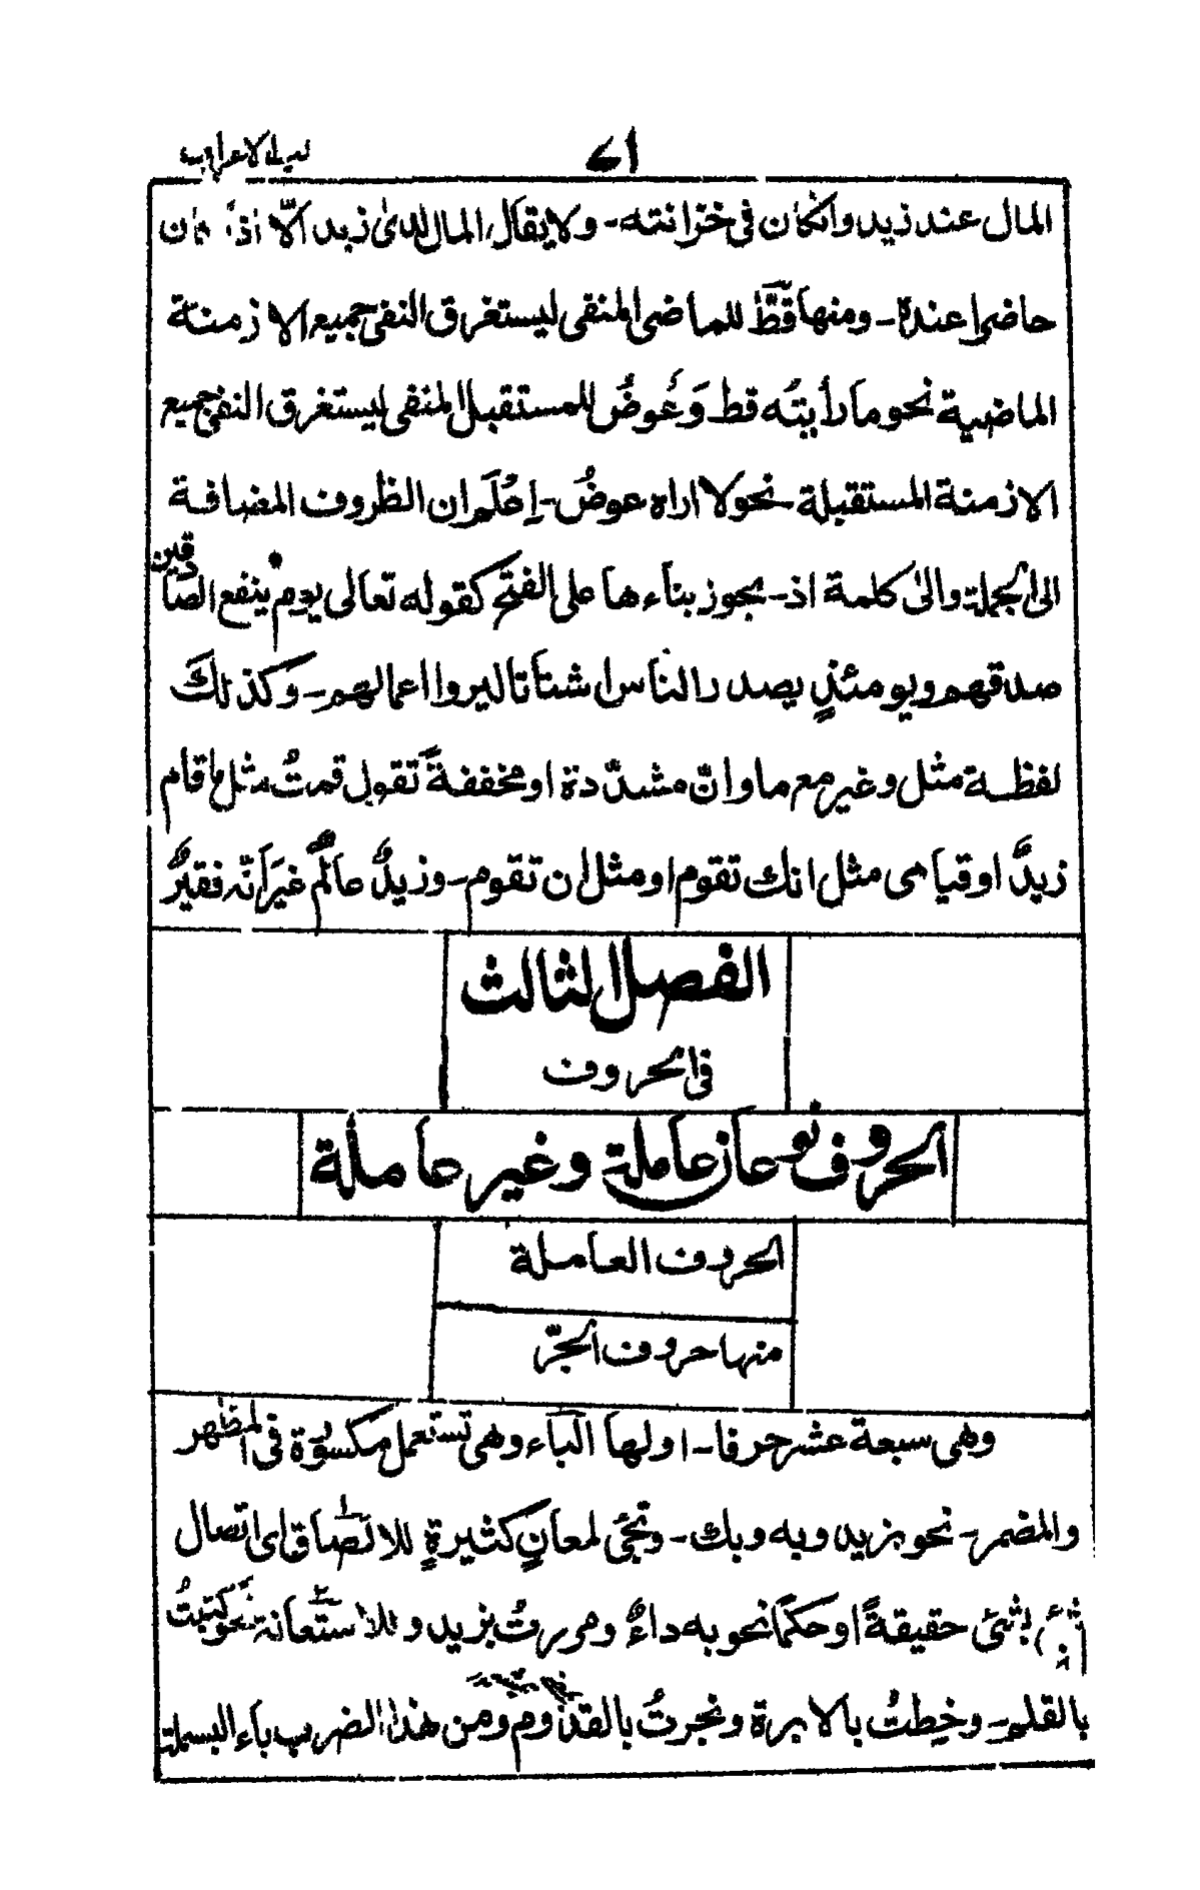 ٤١
المال عند زيد وانكان فى خزانته - ولا يقال المال لدى زيد الّا اذا كان
حاضرا عندہ - ومنها قطّ للماضى المنفى ليستغرق النفى جميع الازمنة
الماضية نحو ما رأيتُه قط وَعَوضُ للمستقبل المنفى ليستغرق النفى جميع
الازمنة المستقبلة - نحو لا اراه عوضُ - اِعْلَم ان الظروف المضافة
الى الجملة والىٰ كلمة اذ - يجوز بناءها على الفتح كقوله تعالى يوم ينفع الصادقين
صدقهم ويومئذٍ يصدر الناس اشتاتا ليروا اعمالهم - وكذلك
لفظة مثل وغير مع ما وانّ مشدّدة او مخففةً تقول قمتُ مثل ما قام
زيدٌ او قيامى مثل انك تقوم او مثل ان تقوم - وزيدٌ عالمٌ غيرَ أنّه فقيرٌ
الفصل الثالث
فى الحروف
الحروف نوعان عاملة وغير عاملة
الحروف العاملة
منها حروف الجرّ
وهى سبعة عشر حرفا - اولها الباء وهى تستعمل مكسورة فى المظهر
والمضمر - نحو بزيد وبه وبك - وتجئ لمعانٍ كثيرةٍ للالصاق اى اتصال
بشئ حقيقةً او حكمًا نحو به داءٌ ومررتُ بزيد وللاستعانة نحو كتبتُ
بالقلم - وخِطتُ بالابرة ونجرتُ بالقدوم ومن هذا الضرب باء البسملة